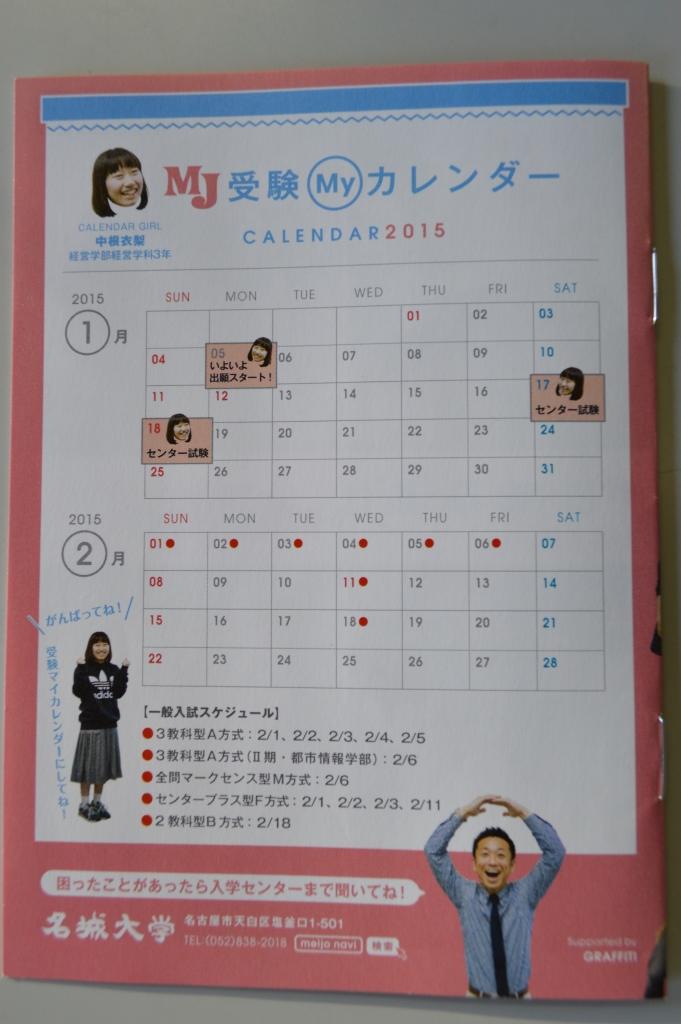 MJ受験Myカレンダー
CALENDAR GIRL
中根衣梨
経営学部経営学科3年
CALENDAR2015
2015
1月
SUN MON TUE WED THU FRI SAT
01 02 03
04 05 いよいよ出願スタート! 06 07 08 09 10
11 12 13 14 15 16 17 センター試験
18 センター試験 19 20 21 22 23 24
25 26 27 28 29 30 31
2015
2月
SUN MON TUE WED THU FRI SAT
01● 02● 03● 04● 05● 06● 07
08 09 10 11● 12 13 14
15 16 17 18● 19 20 21
22 23 24 25 26 27 28
がんばってね!
受験マイカレンダーにしてね!
adidas
【一般入試スケジュール】
●3教科型A方式:2/1、2/2、2/3、2/4、2/5
●3教科型A方式(Ⅱ期・都市情報学部):2/6
●全問マークセンス型M方式:2/6
●センタープラス型F方式:2/1、2/2、2/3、2/11
●2教科型B方式:2/18
困ったことがあったら入学センターまで聞いてね!
名城大学
名古屋市天白区塩釜口1-501
TEL:(052)838-2018 meijo navi 検索
Supported by
GRAFFITI